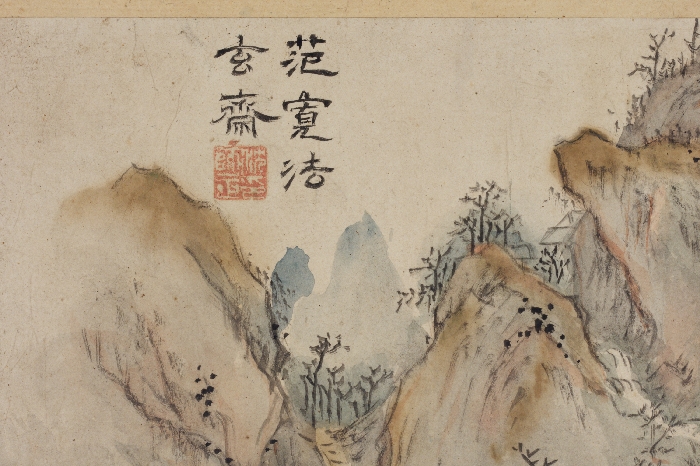 范寛法
玄齋